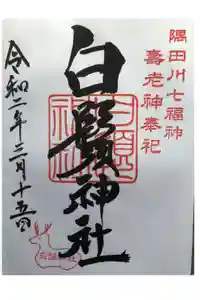 隅田川七福神
壽老神奉祀
白鬚神社
令和二年三月十五日